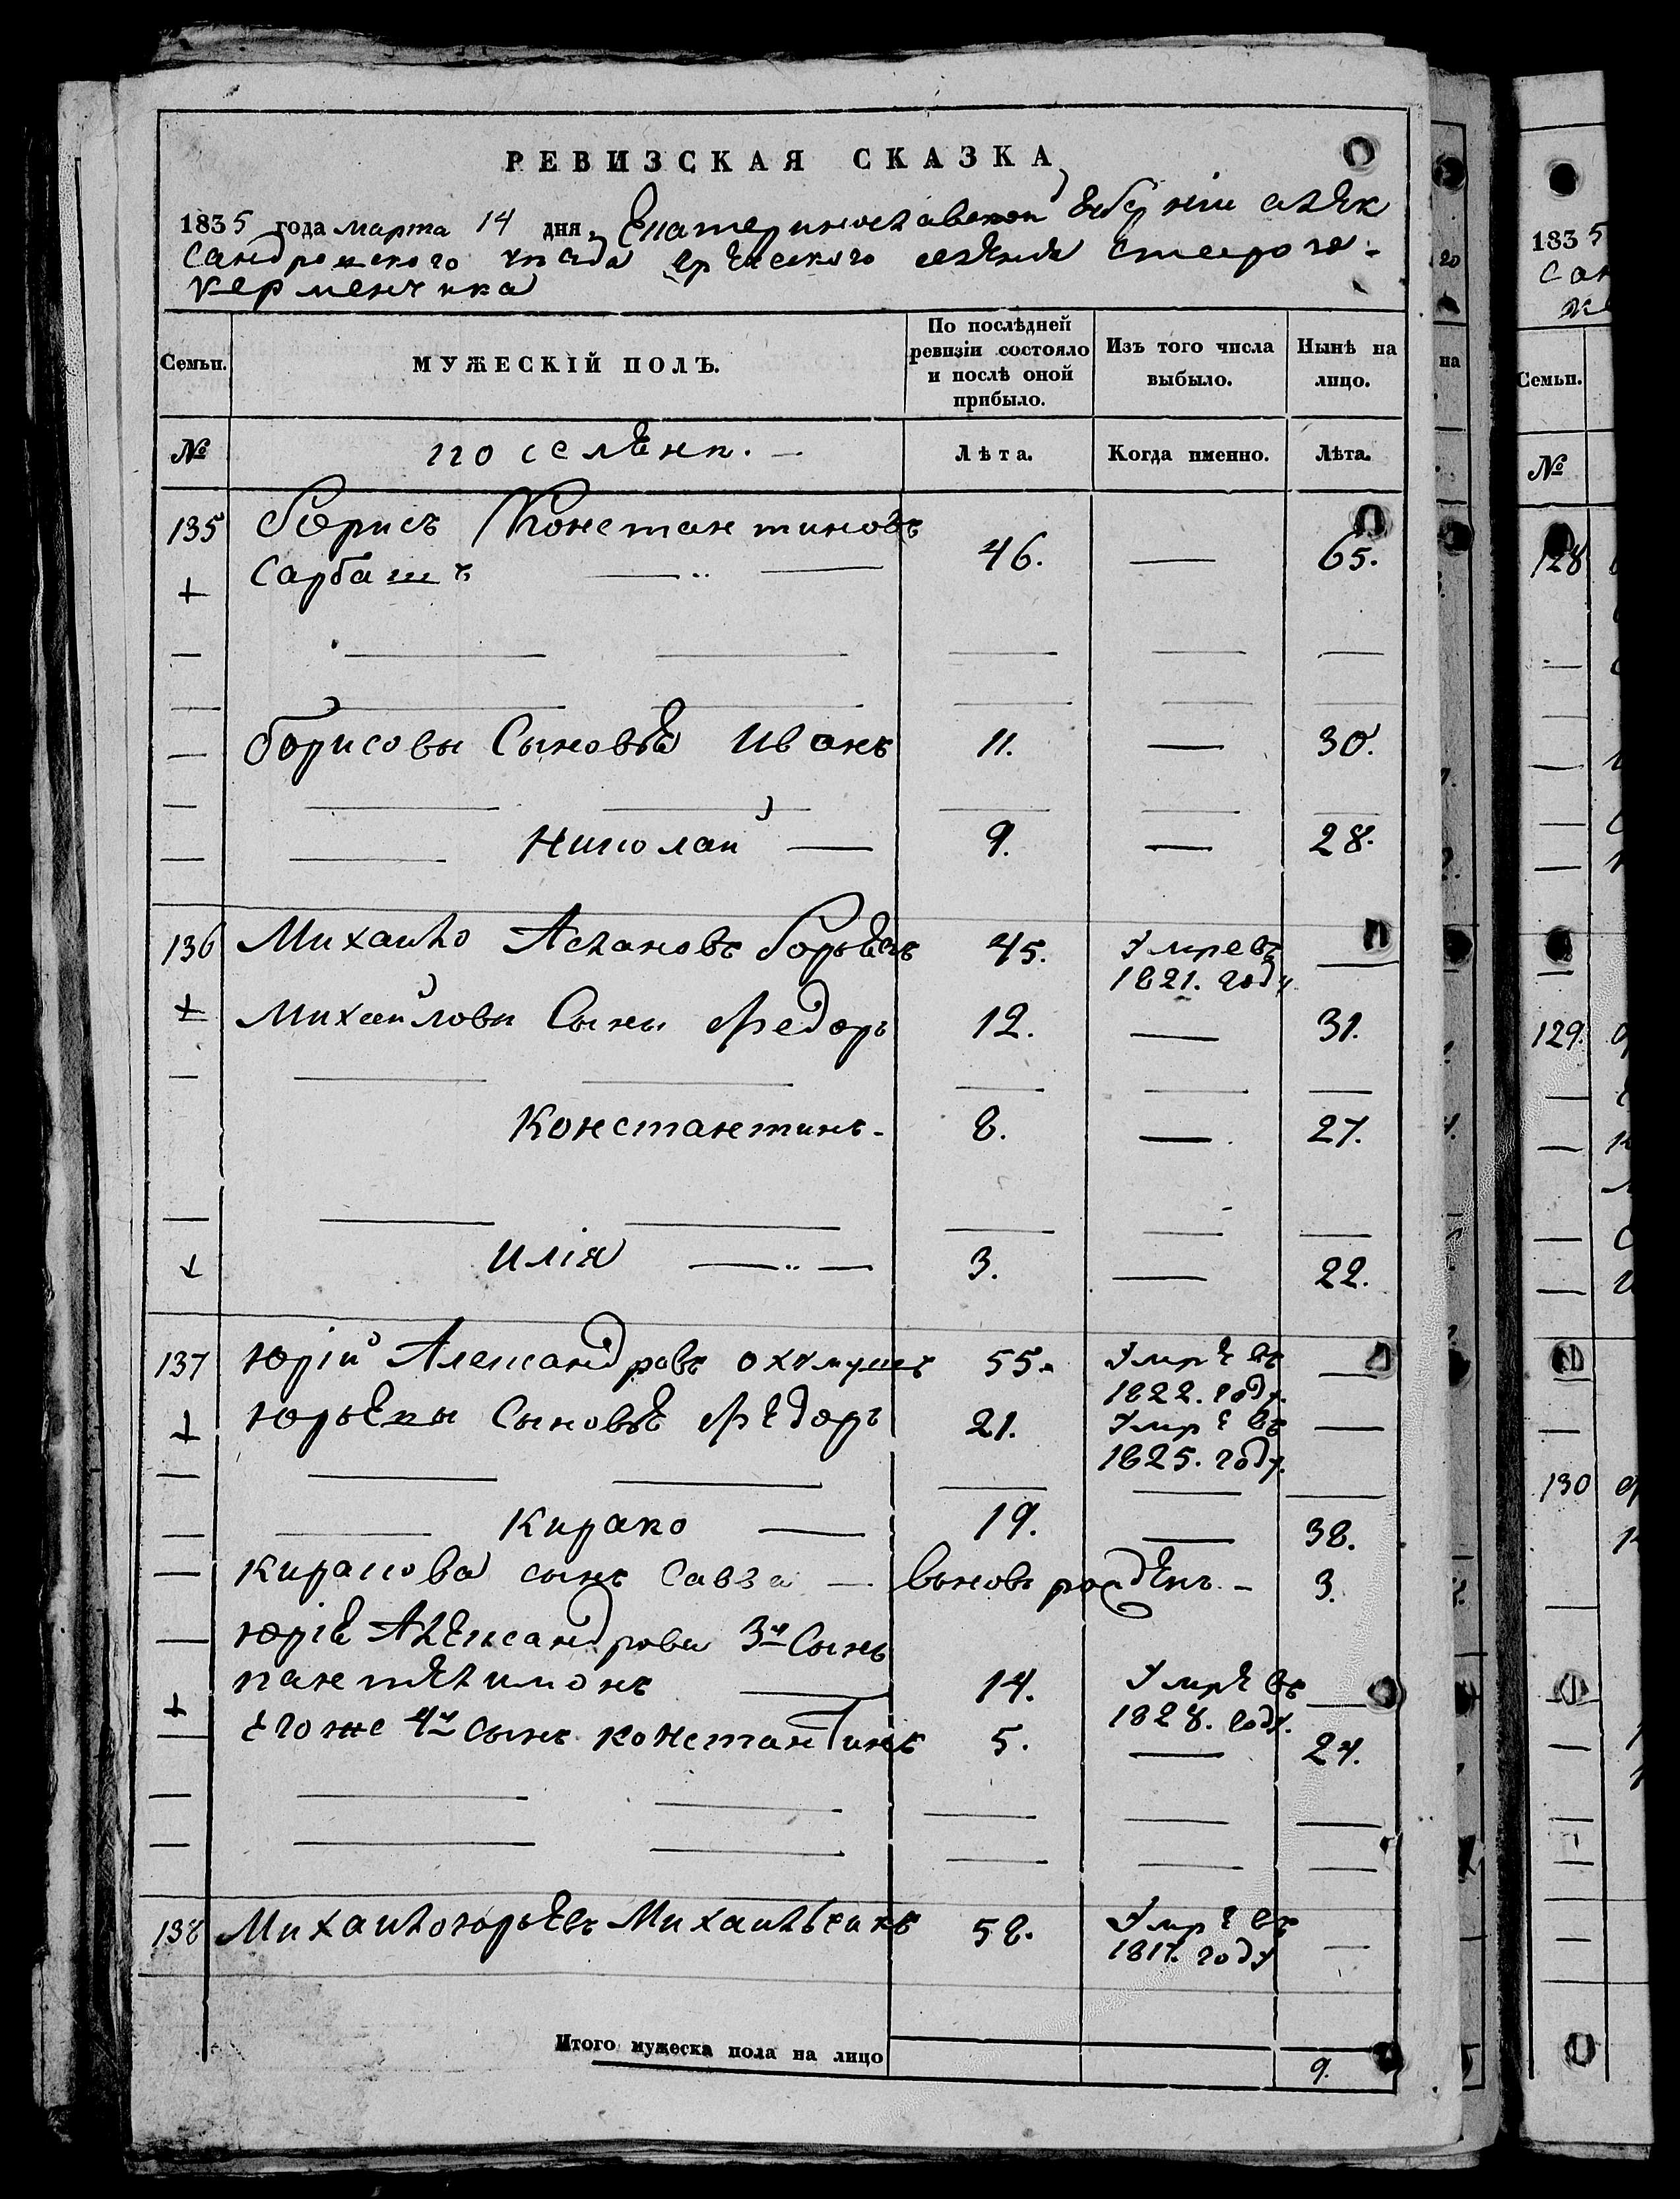 РЕВИЗСКАЯ СКАЗКА
1835 года марта 14 дня, Екатеринославской Губернiи алек
сандровскаго уезда греческого селенiя старого
керменчика
Семьи. МУЖЕСКІЙ ПОЛЪ. По послѣдней ревизіи состояло и послѣ оной прибыло. Изъ того числа выбыло. Нынѣ на лицо.
№ поселѣнп. Лѣта. Когда именно. Лѣта.
135 Борисъ Константиновъ
Сарбашъ 46. — 65.
Борисовы Сыновьѣ Иванъ 11. — 30.
Николай 9. — 28.
136 Михайло Аслановъ 45. Умре въ
1821. году —
Михайловы Сыны Федоръ 12. — 31.
Константинъ 8. — 27.
Илія 3. — 22.
137 Юрій Александровъ охкмушъ 55. Умрѣ въ
1822. году —
Юрьевы Сыновьѣ Федоръ 21. Умрѣ въ
1825. году. —
Кирако 19. — 38.
Киракова сынъ Савва — вновь рождѣнъ — 3.
Юріѣ Алѣксандрова 3й Сынъ
пантѣлимонъ 14. Умрѣ въ
1828. году. —
Егоже 4й сынъ константинъ 5. — 24.
138 Михайло юрьѣвъ 58. Умрѣ въ
1817. году —
Итого мужеска пола на лицо 9.
1835
Семьи.
№
128
129.
130